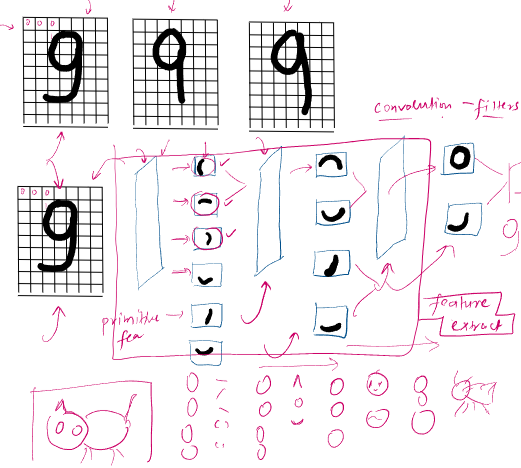 0 0 0
9 9 9
convolution - filters
0 0 0
9
9
primitive
fea
feature
extract